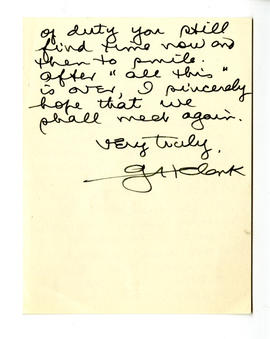 of duty you still
find time now and
then to smile.
After "all this"
is over, I sincerely
hope that we
shall meet again.
Very truly,
Clark